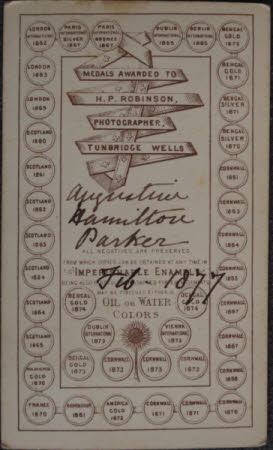 LONDON INTERNATIONAL 1862
PARIS INTERNATIONAL SILVER 1867
PARIS INTERNATIONAL BRONZE 1867
DUBLIN INTERNATIONAL 1865
BERLIN INTERNATIONAL 1865
BENGAL GOLD 1870
LONDON 1863
LONDON 1869
SCOTLAND 1860
SCOTLAND 1861
SCOTLAND 1862
SCOTLAND 1863
SCOTLAND 1864
SCOTLAND 1864
SCOTLAND 1865
GOLD 1870
FRANCE 1870
1861
AMERICA GOLD 1872
CORNWALL 1871
CORNWALL 1871
CORNWALL 1870
BENGAL GOLD 1871
BENGAL SILVER 1871
BENGAL SILVER 1870
CORNWALL 1861
CORNWALL 1863
CORNWALL 1864
CORNWALL 1865
CORNWALL
CORNWALL 1867
CORNWALL 1868
CORNWALL
MEDALS AWARDED TO
H.P. ROBINSON,
PHOTOGRAPHER,
TUNBRIDGE WELLS
Augustine
Hamilton
Parker
ALL NEGATIVES ARE PRESERVED
FROM WHICH COPIES CAN BE OBTAINED AT ANY TIME IN
IMPERISHABLE ENAMEL
Feb 1877
MAY BE FINISHED EITHER IN
BENGAL GOLD 1874
OIL OR WATER
BENGAL GOLD 1874
COLORS.
DUBLIN INTERNATIONAL 1872
VIENNA INTERNATIONAL 1873
BENGAL GOLD 1873
CORNWALL 1872
CORNWALL 1873
CORNWALL 1873